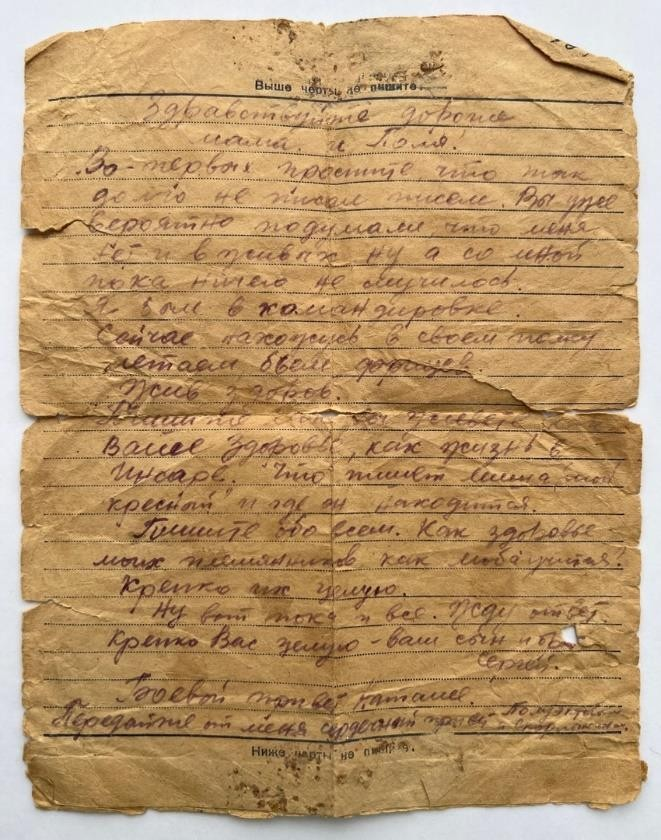 Выше черты не пишите.
Здравствуйте дорогие
мама и Поля!
Во-первых простите что так
долго не писал писем. Вы уже
вероятно подумали что меня
нет в живых ну а со мной
пока ничего не случилось.
Я был в командировке.
Сейчас нахожусь в своем полку
летаем бьем фрицев
Жив здоров.
Пишите как вы живете
Ваше здоровье, как жизнь в
Инсаре. Что пишет мой
крестный" и где он находится.
Пишите обо всем. Как здоровье
моих племянников как учится?
Крепко их целую.
Ну вот пока и все. Жду ответ.
Крепко Вас целую - ваш сын и
Сергей.
Боевой привет Наташе.
Передайте от меня сердечный привет
Ниже черты не пишите.